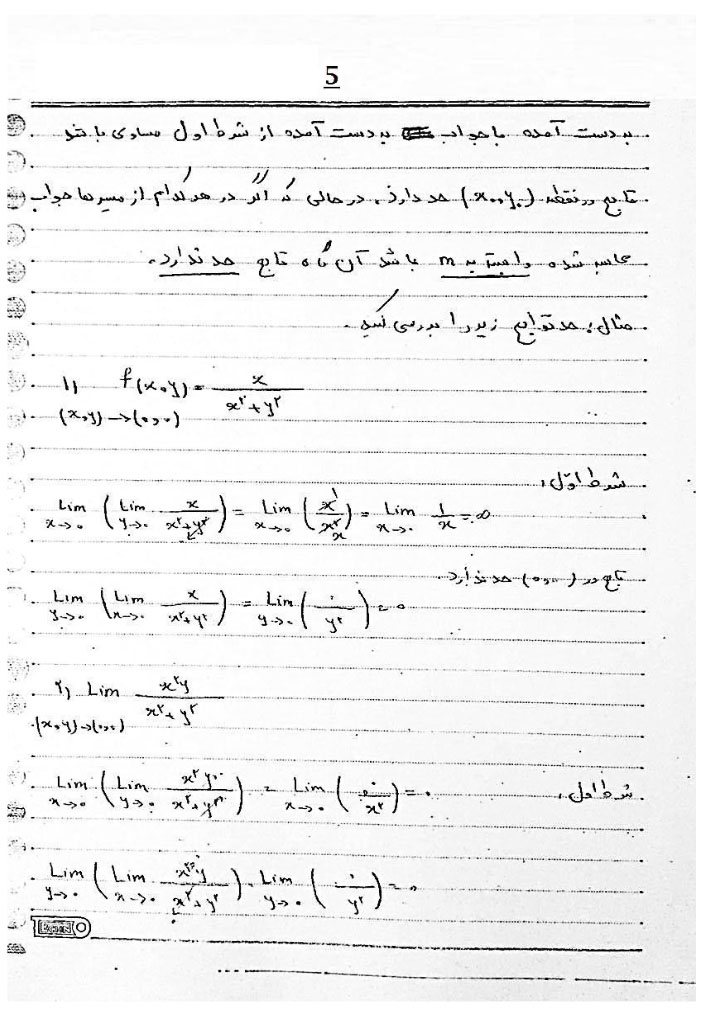 5
بدست آمده با جواب بدست آمده از شرط اول مساوی باشد
تابع در نقطه (x₀,y₀) حد دارد، در حالی که اگر در هر کدام از مسیرها جواب
محاسبه شده وابسته به m باشد آن گاه تابع حد ندارد.
مثال: حد توابع زیر را بررسی کنید.
۱) f(x,y) = x / (x²+y²)
(x,y)→(۰,۰)
شرط اوّل:
Lim x→۰ (Lim y→۰ x/(x²+y²)) = Lim x→۰ (x/x²) = Lim x→۰ 1/x = ∞
تابع در (۰,۰) حد ندارد.
Lim y→۰ (Lim x→۰ x/(x²+y²)) = Lim y→۰ (۰/y²) = ۰
۲) Lim x²y / (x²+y²)
(x,y)→(۰,۰)
شرط اول:
Lim x→۰ (Lim y→۰ x²y/(x²+y²)) = Lim x→۰ (۰/x²) = ۰
Lim y→۰ (Lim x→۰ x²y/(x²+y²)) = Lim y→۰ (۰/y²) = ۰